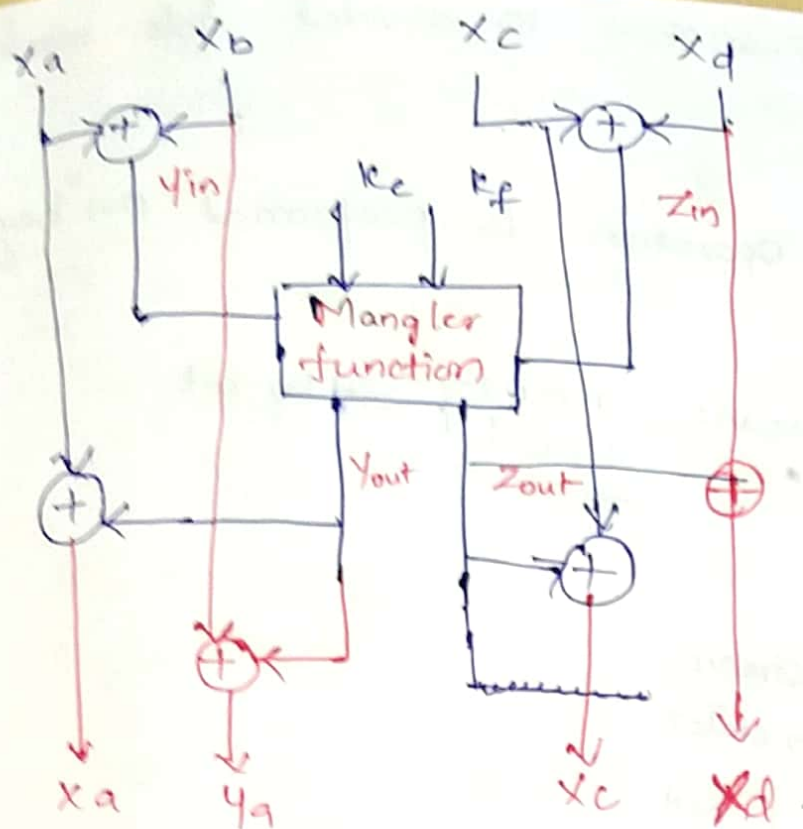 xa xb xc xd
+ +
Yin Ke Kf Zin
Mangler
function
Yout Zout
+ +
+ +
xa ya xc xd